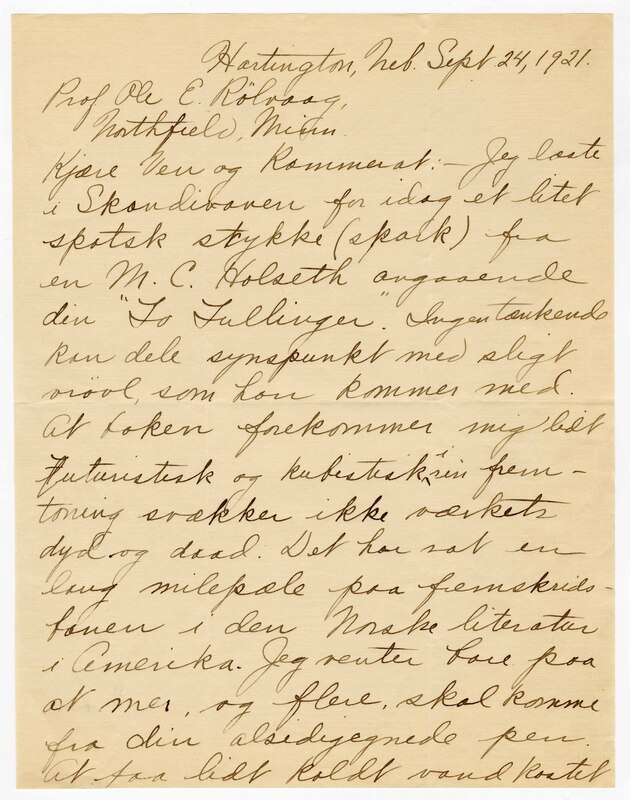 Hartington, Neb. Sept 24, 1921.
Prof Ole E. Rölvaag,
Northfield, Minn.
Kjære Ven og Kammerat:— Jeg læste
i Skandinaven for idag et litet
spotsk stykke (spark) fra
en M. C. Holseth angaaende
din "To Tullinger". Ingen tænkende
kan dele synspunkt med sligt
vrøvl, som han kommer med.
At boken forekommer mig lidt
futuristisk og kubestisk i sin frem-
toning svækker ikke værkets
dyd og daad. Det har sat en
lang milepæle paa fremskrids-
banen i den Norske literatur
i Amerika. Jeg venter bare paa
at mer, og flere, skal komme
fra din alsidigegnede pen.
At faa lidt koldt vand kastet